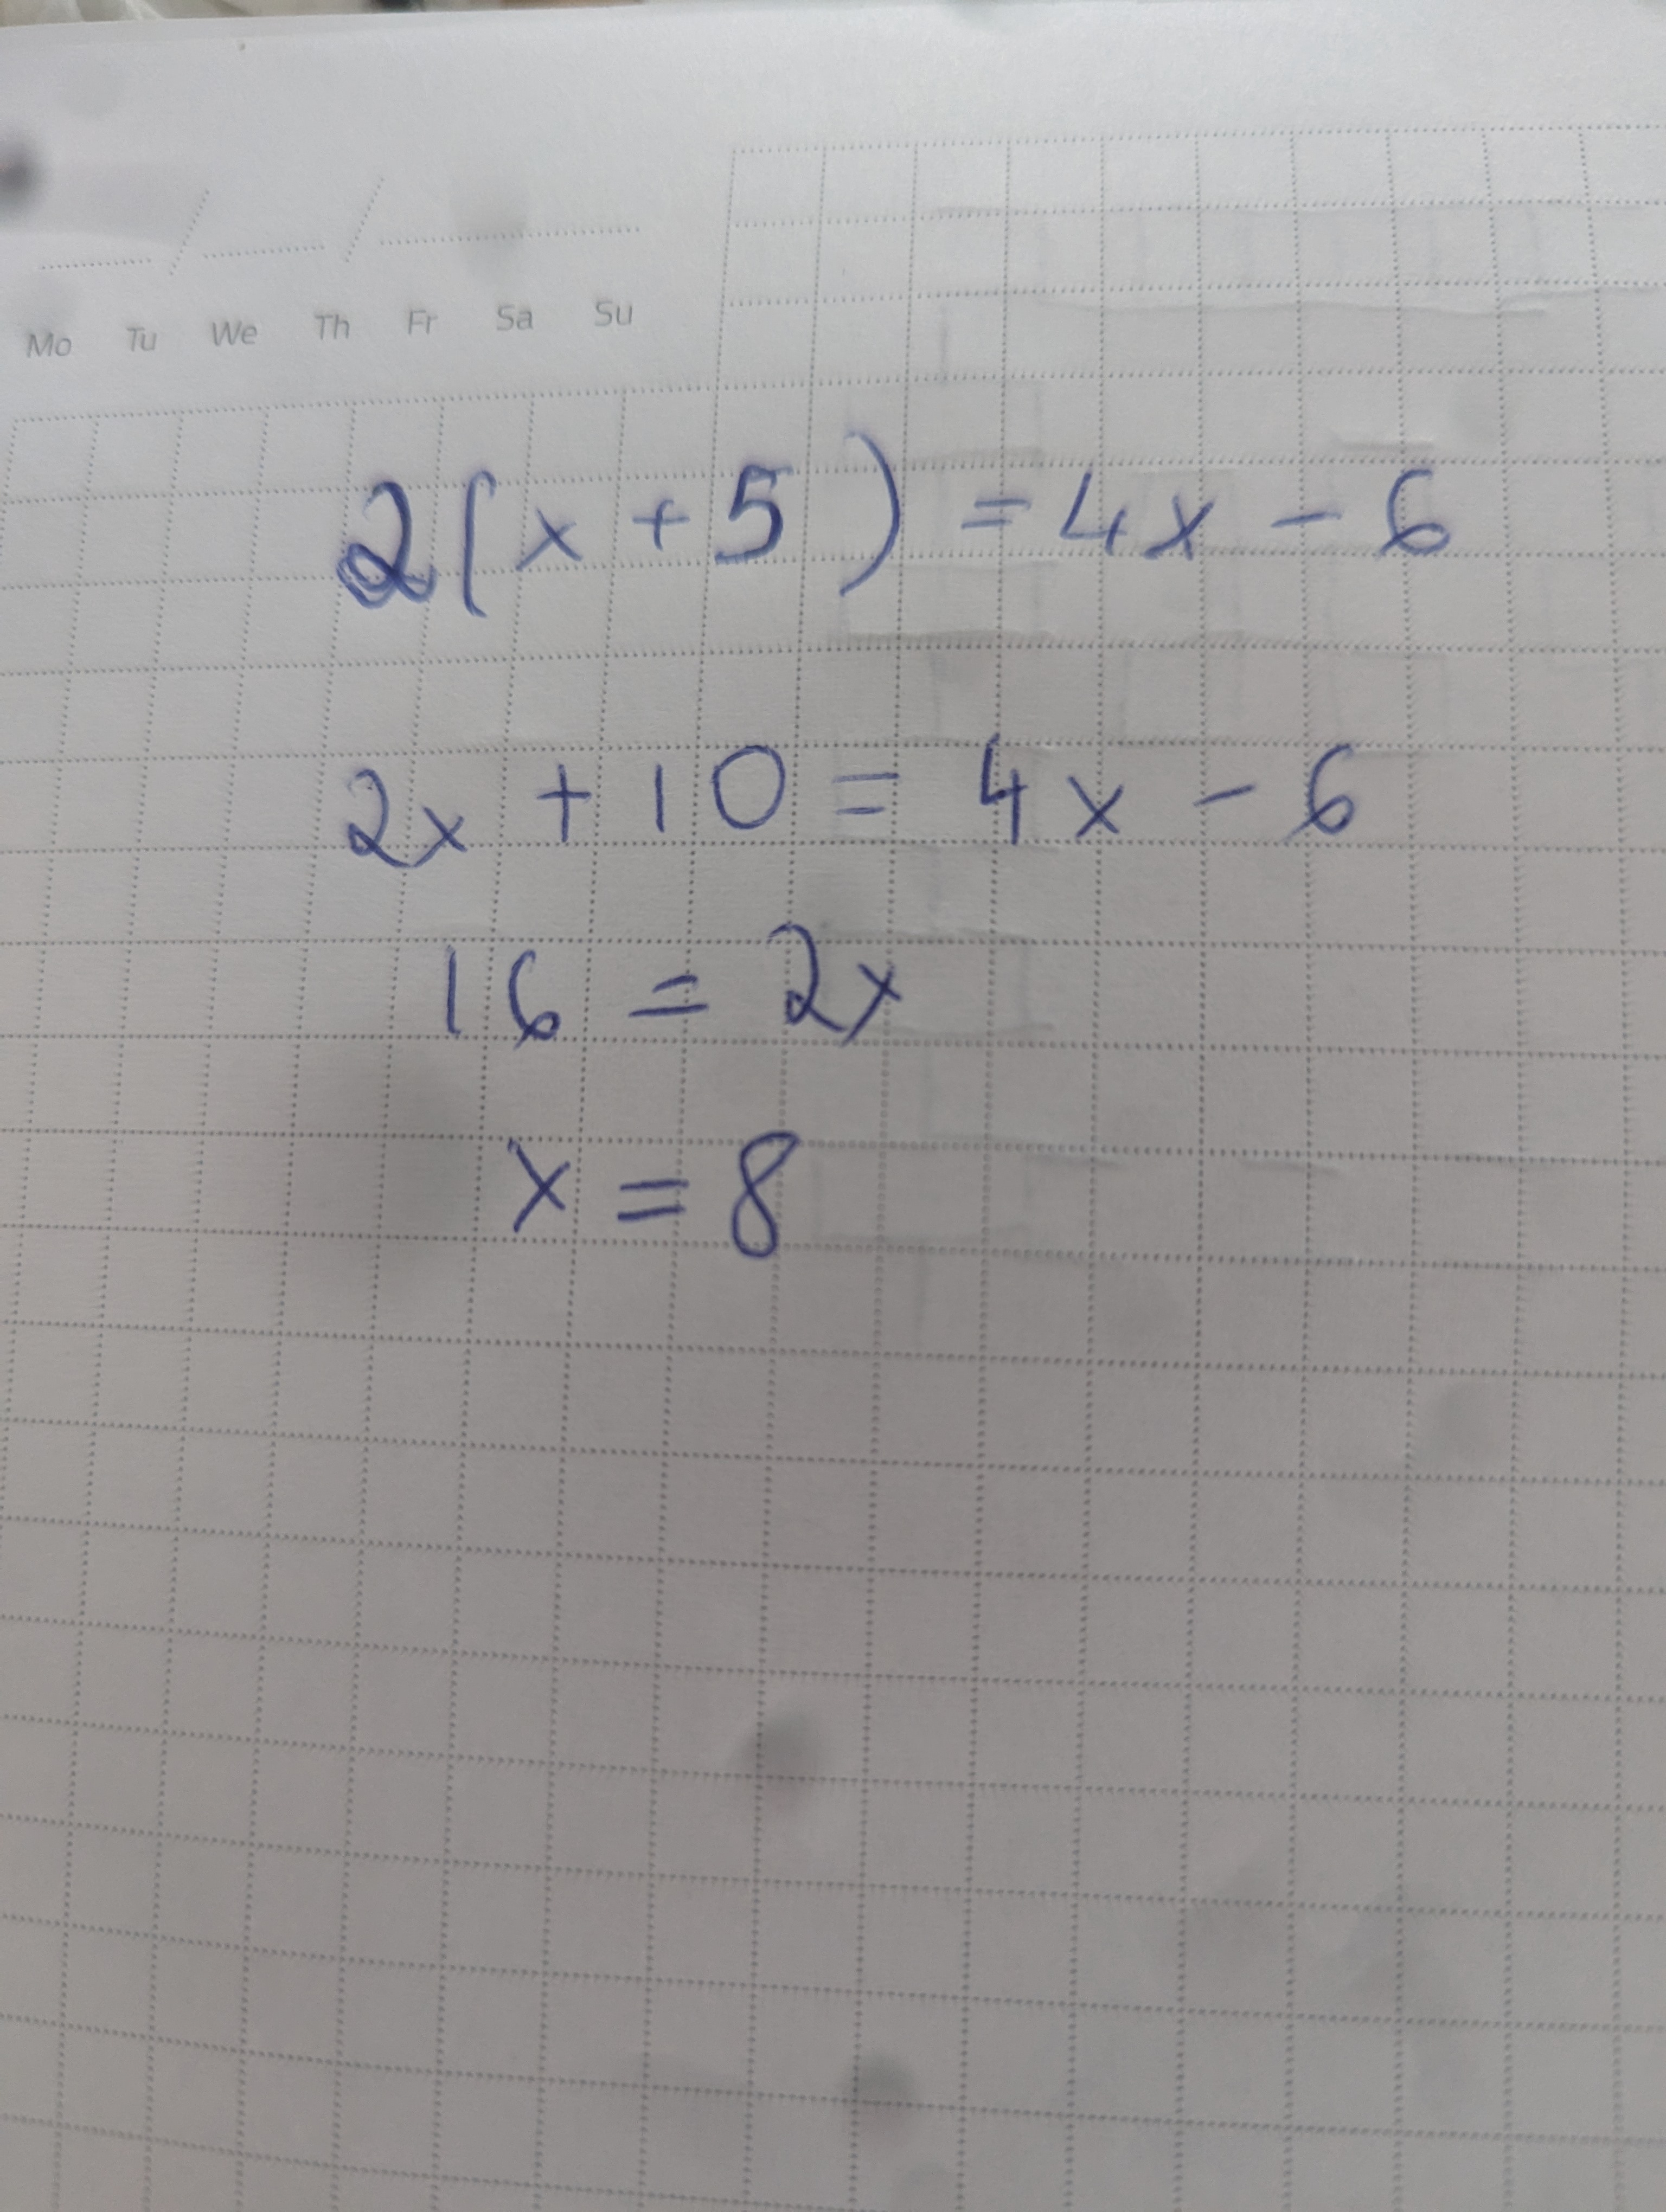 Mo Tu We Th Fr Sa Su
2(x+5) = 4x - 6
2x + 10 = 4x - 6
16 = 2x
x = 8